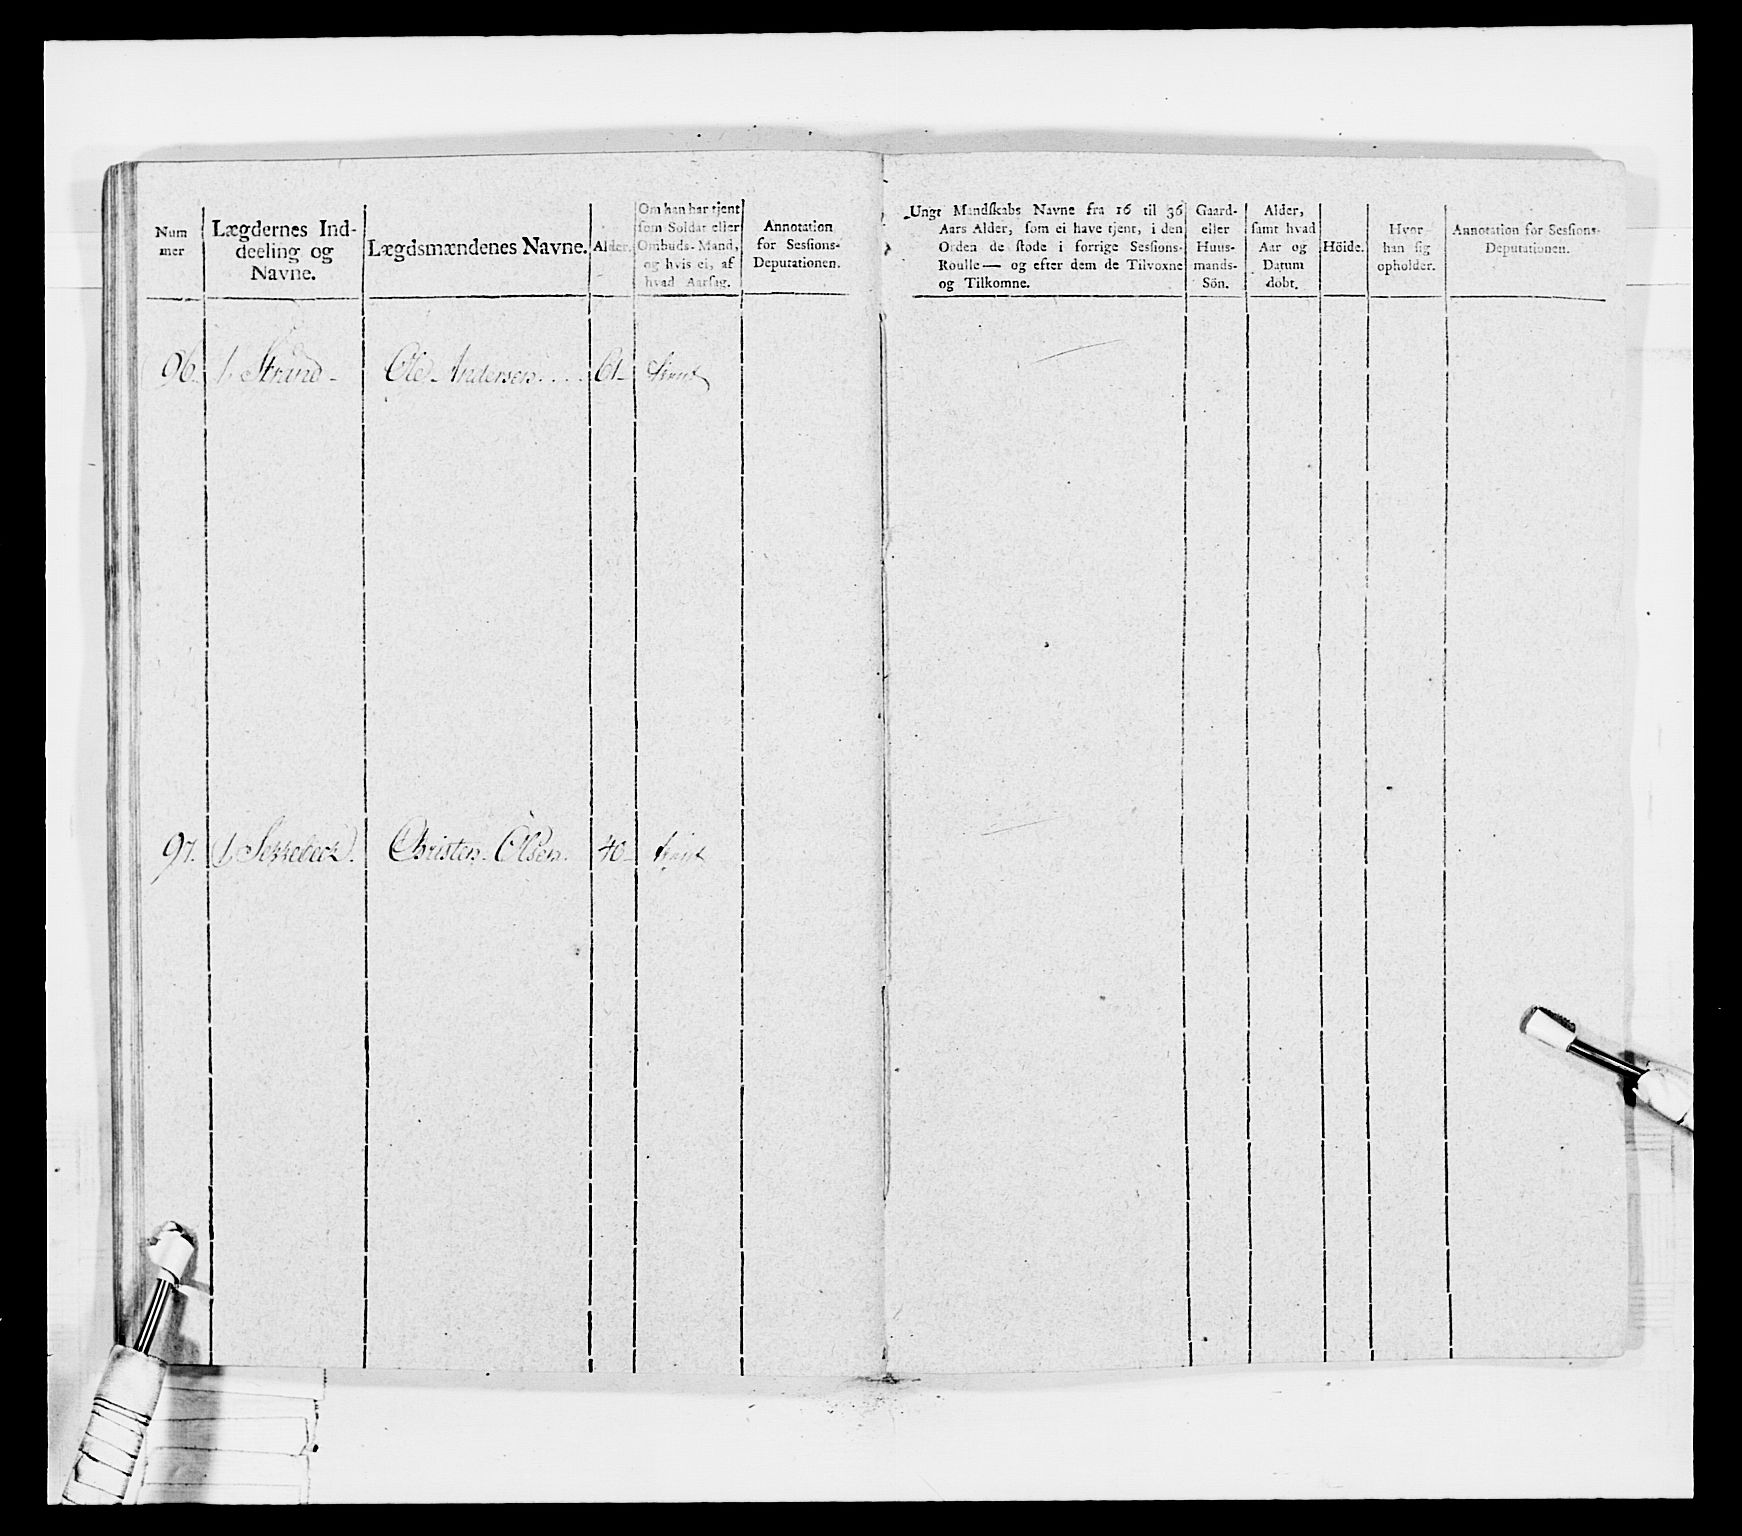 Num
mer
Lægdernes Ind-
deeling og
Navne.
Lægdsmændenes Navne.
Alder.
Om han har tjent
som Soldat eller
Ombuds-Mand,
og hvis ei, af
hvad Aarsag.
Annotation
for Sessions-
Deputationen.
Ungt Mandskabs Navne fra 16 til 36
Aars Alder, som ei have tjent, i den
Orden de stode i forrige Sessions-
Roulle — og efter dem de Tilvoxne
og Tilkomne.
Gaard-
eller
Huus-
mands-
Sön.
Alder,
samt hvad
Aar og
Datum
döbt.
Höide.
Hvor
han sig
opholder.
Annotation for Sessions-
Deputationen.
96. 1 Strand - Ole Andersen .... 61 - tient
97. 1 Sekkebeck. Christen Olsen. 40 - tient